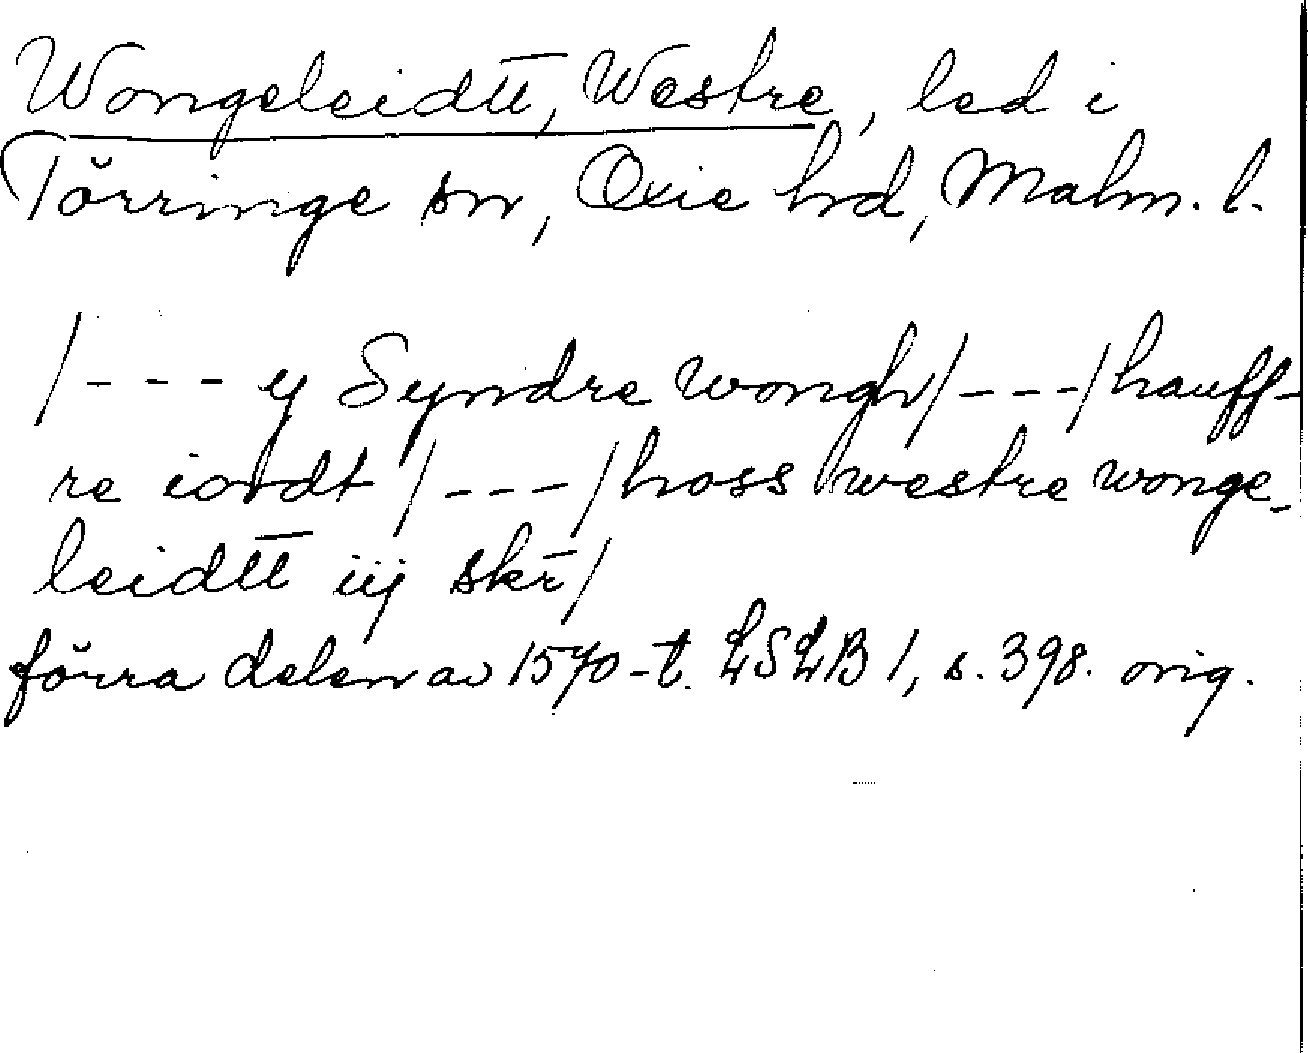 Wongeleidtt̅, Westre, led i
Törringe sn, Oxie hd, Malm. l.
/--- y Syndre wongh/---/hauff-
re iordt /---/hoss westre wonge-
leidtt̅ iij skr̅/
förra delen av 1570-t. LSLB 1, s. 398. orig.